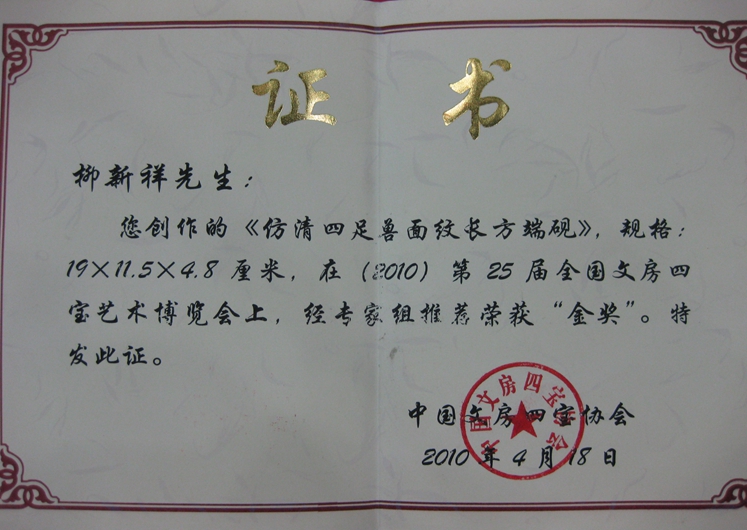 证书
柳新祥先生：
您创作的《仿清四足兽面纹长方端砚》，规格：
19×11.5×4.8厘米，在（2010）第25届全国文房四
宝艺术博览会上，经专家组推荐荣获“金奖”。特
发此证。
中国文房四宝协会
2010年4月18日
中国文房四宝协会